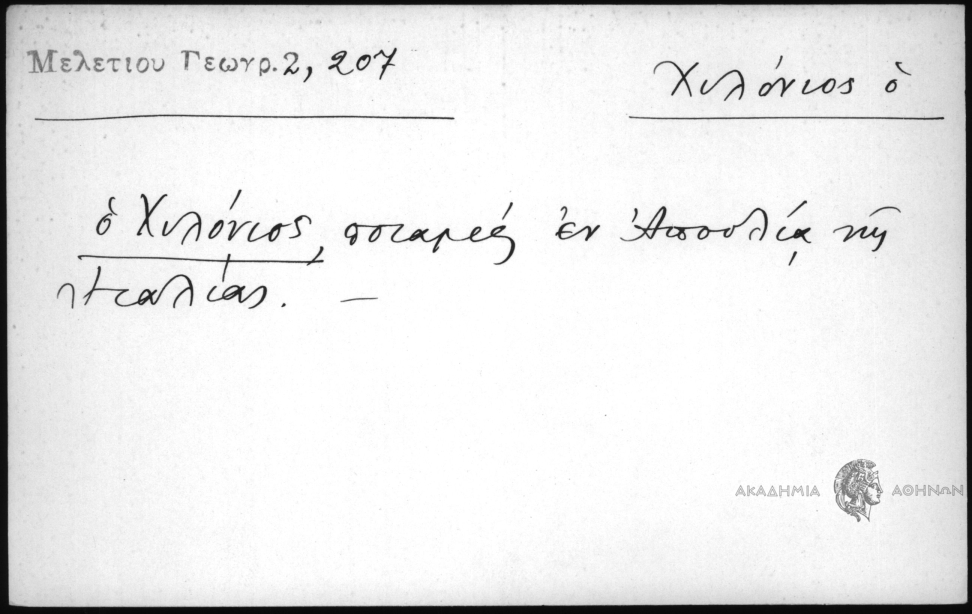 Μελετίου Γεωγρ. 2, 207
Χυλόνιος ὁ
ὁ Χυλόνιος, ποταμός ἐν Ἀπουλίᾳ τῆς
Ἰταλίας. —
ΑΚΑΔΗΜΙΑ ΑΘΗΝΩΝ